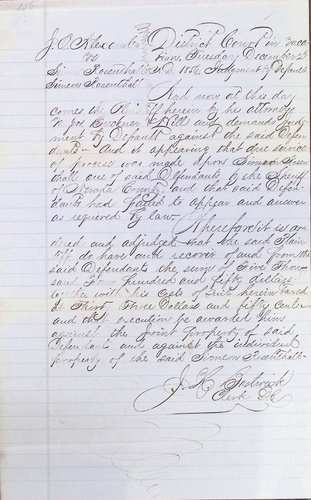 J. O. Alexander District Court in Vaca
vs tion, Tuesday December 23
Simn Rosenthal & A.D. 1856. Judgement by Default
Simeon Rosenthal
And now at this day
comes the Plntff herein by his attorney
Buckner & Hill and demands Judg
ment by Default against the said Defen
dants And it appearing that due service
of process was made upon Simeon Rosen
thall one of said Defendants by the Sheriff
of Nevada County, and that said Defen-
dants had failed to appear and answer
as required by law.
Wherefore it is or
dered and adjudged that the said Plain
tiff do have and recover of and from the
said Defendants the sum of Five Thou
sand Four hundred and fifty dollars
together with his costs of suit herein taxed
at Thirty Three Dollars and fifty cents
and that execution be awarded him
against the joint property of said
Defendants and against the individual
property of the said Simeon Rosenthall.
J. H. Bostwick
Clerk